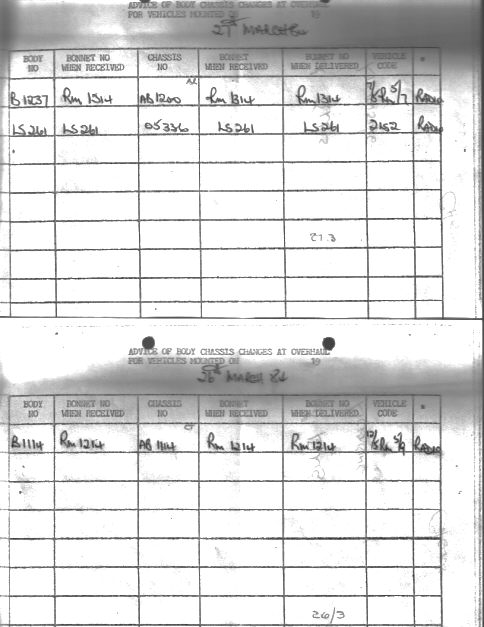 ADVICE OF BODY CHASSIS CHANGES AT OVERHAUL
FOR VEHICLES MOUNTED ON 19
27 MARCH 84
BODY NO BONNET NO WHEN RECEIVED CHASSIS NO BONNET WHEN MOUNTED BONNET NO WHEN DELIVERED VEHICLE CODE *
B1237 RM 1314 AB1200 RM 1314 RM 1314 7/5RM5/7 RADIO
LS261 LS261 05336 LS261 LS261 2LS2 RADIO
27.3
ADVICE OF BODY CHASSIS CHANGES AT OVERHAUL
FOR VEHICLES MOUNTED ON 19
26TH MARCH 84
BODY NO BONNET NO WHEN RECEIVED CHASSIS NO BONNET WHEN MOUNTED BONNET NO WHEN DELIVERED VEHICLE CODE *
B1114 RM 1214 AB 1114 RM 1214 RM 1214 12/5RM5/9 RADIO
26/3